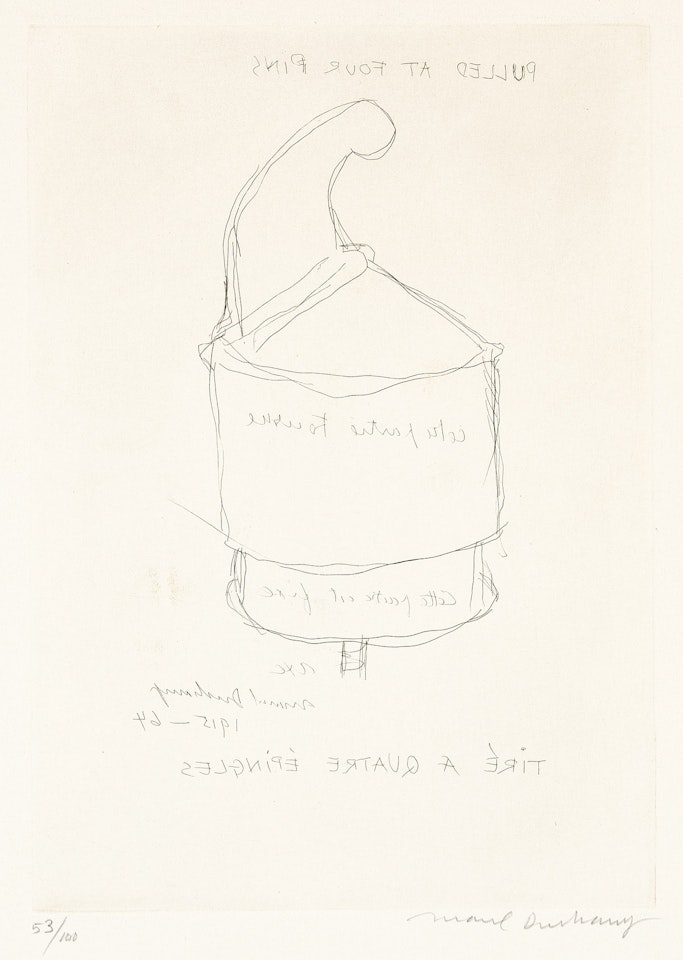 PULLED AT FOUR PINS
cette partie tourne
Cette partie est fixe
axe
Marcel Duchamp
1915 – 64
TIRÉ A QUATRE ÉPINGLES
53/100
Marcel Duchamp